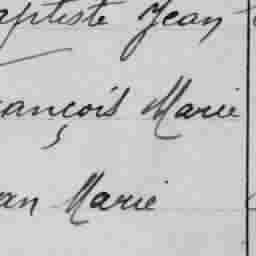 aptiste Jean
ançois Marie
an Marie